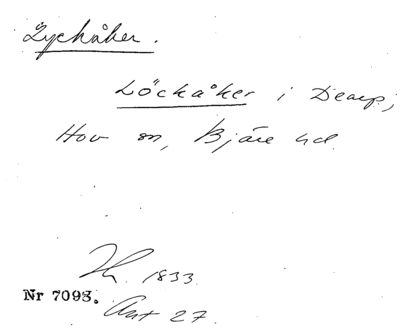 Lyckåker.
Löckåker i Dearp;
Hov sn, Bjäre hd
1833
Nr 7098.
Akt 27